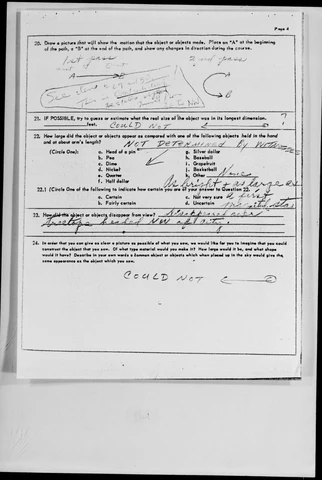 Page 4
20. Draw a picture that will show the motion that the object or objects made. Place an "A" at the beginning
of the path, a "B" at the end of the path, and show any changes in direction during the course.
1st pass
2nd pass
A B
A
B
21. IF POSSIBLE, try to guess or estimate what the real size of the object was in its longest dimension.
feet. COULD NOT ?
22. How large did the object or objects appear as compared with one of the following objects held in the hand
and at about arm's length? NOT DETERMINED BY WITNESSES
(Circle One): a. Head of a pin g. Silver dollar
b. Pea h. Baseball
c. Dime i. Grapefruit
d. Nickel j. Basketball
e. Quarter k. Other None
f. Half dollar As bright + as large as
22.1 (Circle One of the following to indicate how certain you are of your answer to Question 22.
a. Certain c. Not very sure a first
b. Fairly certain d. Uncertain magnitude star
23. How did the object or objects disappear from view? Disappeared over
treetops headed NW of city.
24. In order that you can give as clear a picture as possible of what you saw, we would like for you to imagine that you could
construct the object that you saw. Of what type material would you make it? How large would it be, and what shape
would it have? Describe in your own words a common object or objects which when placed up in the sky would give the
same appearance as the object which you saw.
COULD NOT